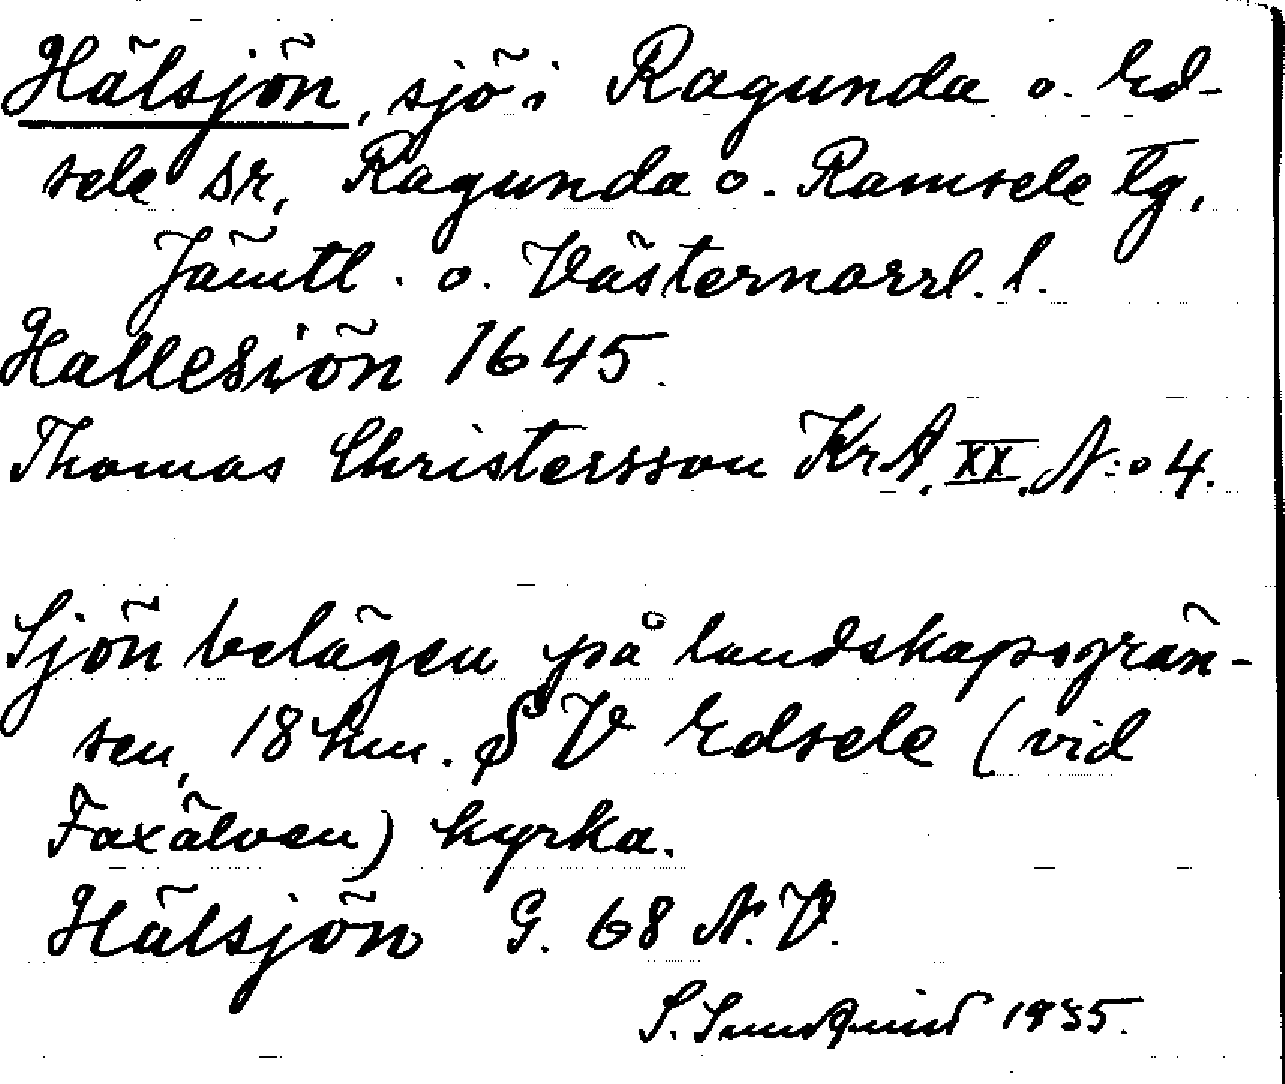 Hälsjön, sjö i Ragunda o. Ed-
sele sr, Ragunda o. Ramsele tg,
Jämtl. o. Västernorrl. l.
Hallesiön 1645.
Thomas Christersson KrA. XX. N:o 4.
Sjön belägen på landskapsgrän-
sen, 18 km. S V Edsele (vid
Faxälven) kyrka.
Hälsjön G. 68 N.V.
S. Sundqvist 1935.